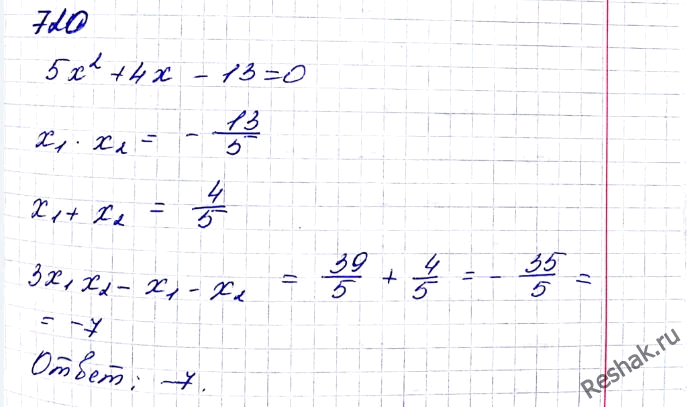 720
5x² + 4x - 13 = 0
x₁ · x₂ = - 13/5
x₁ + x₂ = 4/5
3x₁x₂ - x₁ - x₂ = 39/5 + 4/5 = - 35/5 =
= -7
Ответ: -7.
Reshak.ru